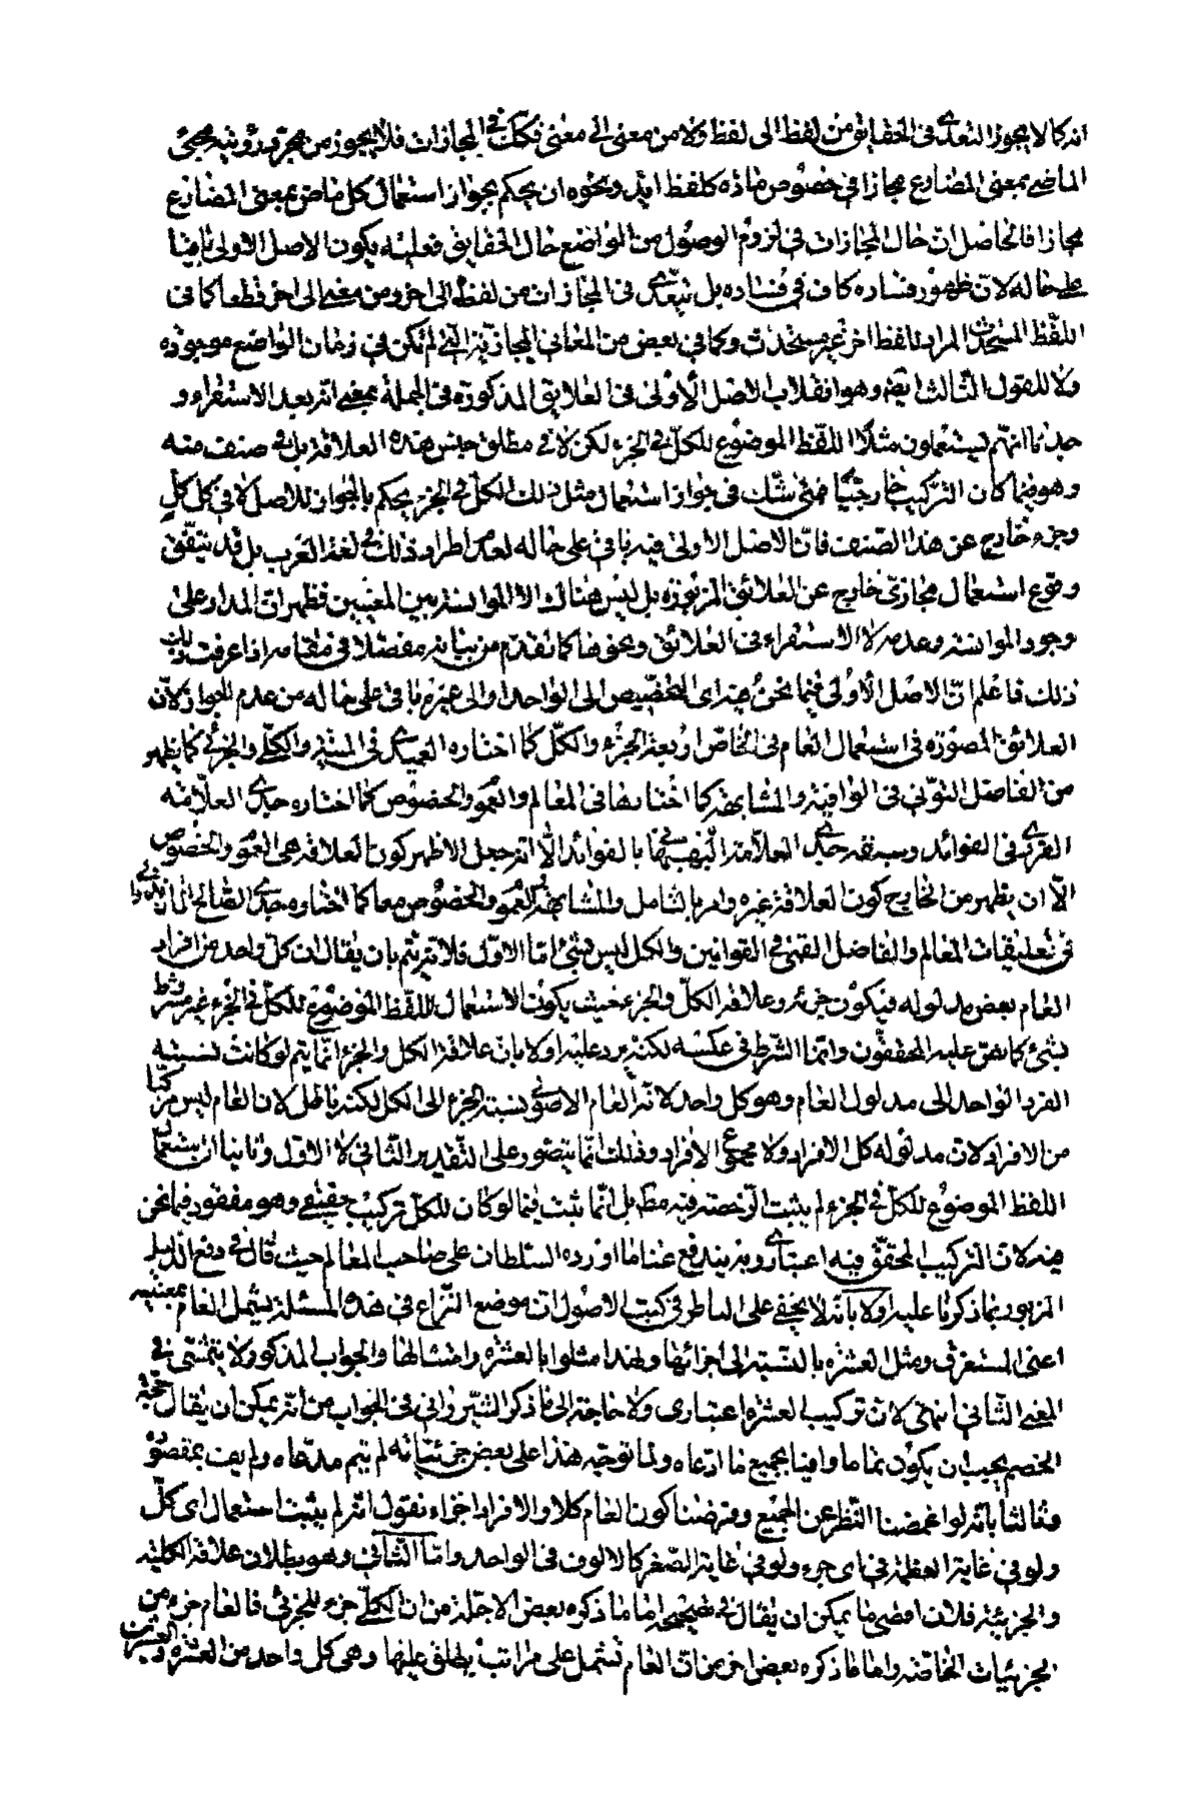 انه كما لا يجوز التعدي فى الحقايق من لفظ الى لفظ ولا من معنى الى معنى فكك فى المجازات فلا يجوز من مجرد رؤيته مجئ
الماضى بمعنى المضارع مجازا فى خصوص ماده كلفظ ايد ونحوه ان يحكم بجواز استعمال كل ماض بمعنى المضارع
مجازا فالحاصل ان حال المجازات فى لزوم الوصول من الواضع حال الحقايق فعليه يكون الاصل الاولى باقيا
على حاله لان ظهور فساده كاف فى فساده بل نتعدى فى المجازات من لفظ الى اخر ومن معنى الى اخر قطعا كما فى
اللفظ المستحدث المرادف للفظ اخر غير مستحدث وكما فى بعض من المعانى المجازية التى لم تكن فى زمان الواضع موجوده
ولا للقول الثالث ايضا وهو انقلاب الاصل الاولى فى العلايق المذكورة فى الجملة بمعنى انه بعد الاستقراء و
جدنا انهم يستعملون مثلا اللفظ الموضوع للكل فى الجزء لكن لا فى مطلق جنس هذه العلاقة بل فى صنف منه
وهو فيما كان التركيب خارجيا فمتى شك فى جواز استعمال مثل ذلك الكل فى الجزء يحكم بالجواز للاصل لا فى كل كل
وجزء خارج عن هذا الصنف فان الاصل الاولى فيه باق على حاله لعدم اطراد ذلك فى لغة العرب بل قد يتفق
وقوع استعمال مجازى خارج عن العلائق المزبوره بل ليس هناك الا الموانسة بين المعنيين فظهر ان المدار على
وجود الموانسة وعدمه لا الاستقراء فى العلائق ونحوها كما تقدم من بيانه مفصلا فى مقامه اذا عرفت
ذلك فاعلم ان الاصل الاولى فيما نحن فيه اى التخصيص الى الواحد والى غيره باق على حاله من عدم الجواز لان
العلائق المصوره فى استعمال العام فى الخاص اربعة الجزء والكل كما اختاره العميدى فى المنية والكلى والجزئى كما يظهر
من الفاضل التونى فى الوافية والمشابهة كما اختارها فى المعالم والعموم والخصوص كما اختاره جدى العلامه
القزى فى الفوائد وسبقه جدى العلامة البهبهانى بالفوائد الا انه جعل الاظهر كون العلاقة هى العموم والخصوص
الا ان يظهر من الخارج كون العلاقة غيره وامر بالتامل والمشابهة والعموم والخصوص معا كما اختاره جدى الصالح المازندرانى
فى تعليقات المعالم والفاضل القمى فى القوانين والكل ليس بشئ اما الاول فلانه يتم بان يقال ان كل واحد من افراد
العام بعض مدلوله فيكون جزئه وعلاقة الكل والجزء حيث يكون الاستعمال للفظ الموضوع للكل فى الجزء غير مشروط
بشئ كما نص عليه المحققون وانما الشرط فى عكسه لكنه يرد عليه اولا بان علاقة الكل والجزء انما يتم لو كانت نسبته
الفرد الواحد الى مدلول العام وهو كل واحد لانه العام الاصولى نسبة الجزء الى الكل لكنه باطل لان العام ليس مركبا
من الافراد لان مدلوله كل الافراد ولا مجموع الافراد وذلك انما يتصور على التقدير الثانى لا الاول وثانيا ان استعمال
اللفظ الموضوع للكل فى الجزء لم يثبت الرخصة فيه مط بل انما ثبت فيما لو كان للكل تركيب حقيقى وهو مفقود فيما نحن
فيه لان التركيب المحقق فيه اعتبارى وبه يندفع عنا ما اورده السلطان على صاحب المعالم حيث قال فى دفع الدليل
المزبور بما ذكرنا عليه اولا بانه لا يخفى على الناظر فى كتب الاصول ان موضع النزاع فى هذه المسئلة يشمل العام بمعنييه
اعنى المستغرق ومثل العشره بالنسبة الى اجزائها ولهذا مثلوا بالعشره وامثالها والجواب المذكور لا يتمشى فى
المعنى الثانى انتهى لان تركيب العشره اعتبارى ولا حاجة الى ما ذكر الشيروانى فى الجواب من انه يمكن ان يقال حجة
الخصم يجب ان يكون تماما وافيا بجميع ما ادعاه ولما توجه هذا على بعض جزئياته لم يتم مدعاه ولم يف بمقصوده
وثالثا بانه لو اغمضنا النظر عن الجميع وفرضنا كون العام كلا والافراد اجزاء نقول انه لم يثبت استعمال اى كل
ولو فى غاية العظمة فى اى جزء ولو فى غاية الصغر كالالوف فى الواحد واما الثانى وهو بطلان علاقة الكلية
والجزئية فلان اقصى ما يمكن ان يقال فى تصحيحها ما ذكره بعض الاجلة من ان الكلى جزء للجزئى فالعام جزء من
الجزئيات الخاصة واما ما ذكره بعض اخر من ان العام تشتمل على مراتب يطلق عليها وهى كل واحد من العشره والعشرين